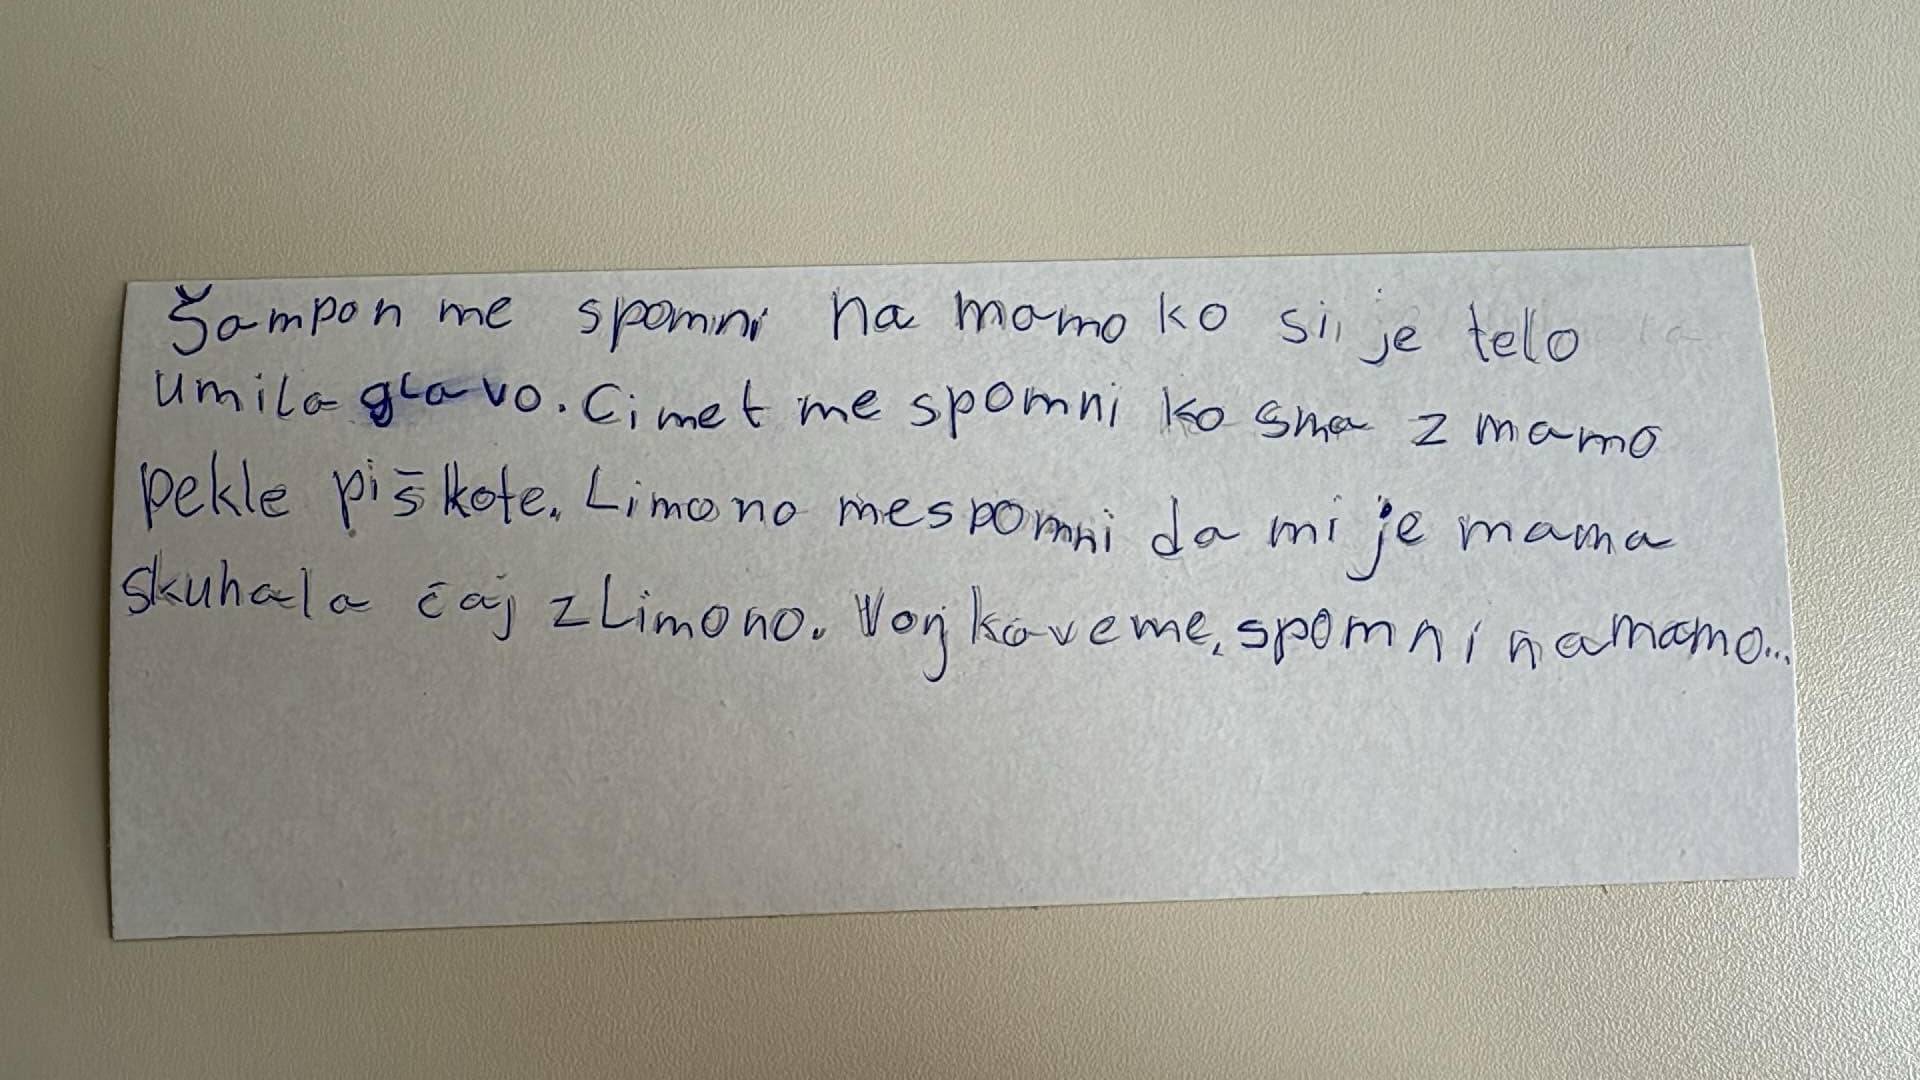 Šampon me spomni na mamo ko si je telo
umila glavo. Cimet me spomni ko sma z mamo
pekle piškote. Limono me spomni da mi je mama
skuhala čaj z Limono. Vonj kave me, spomni na mamo...